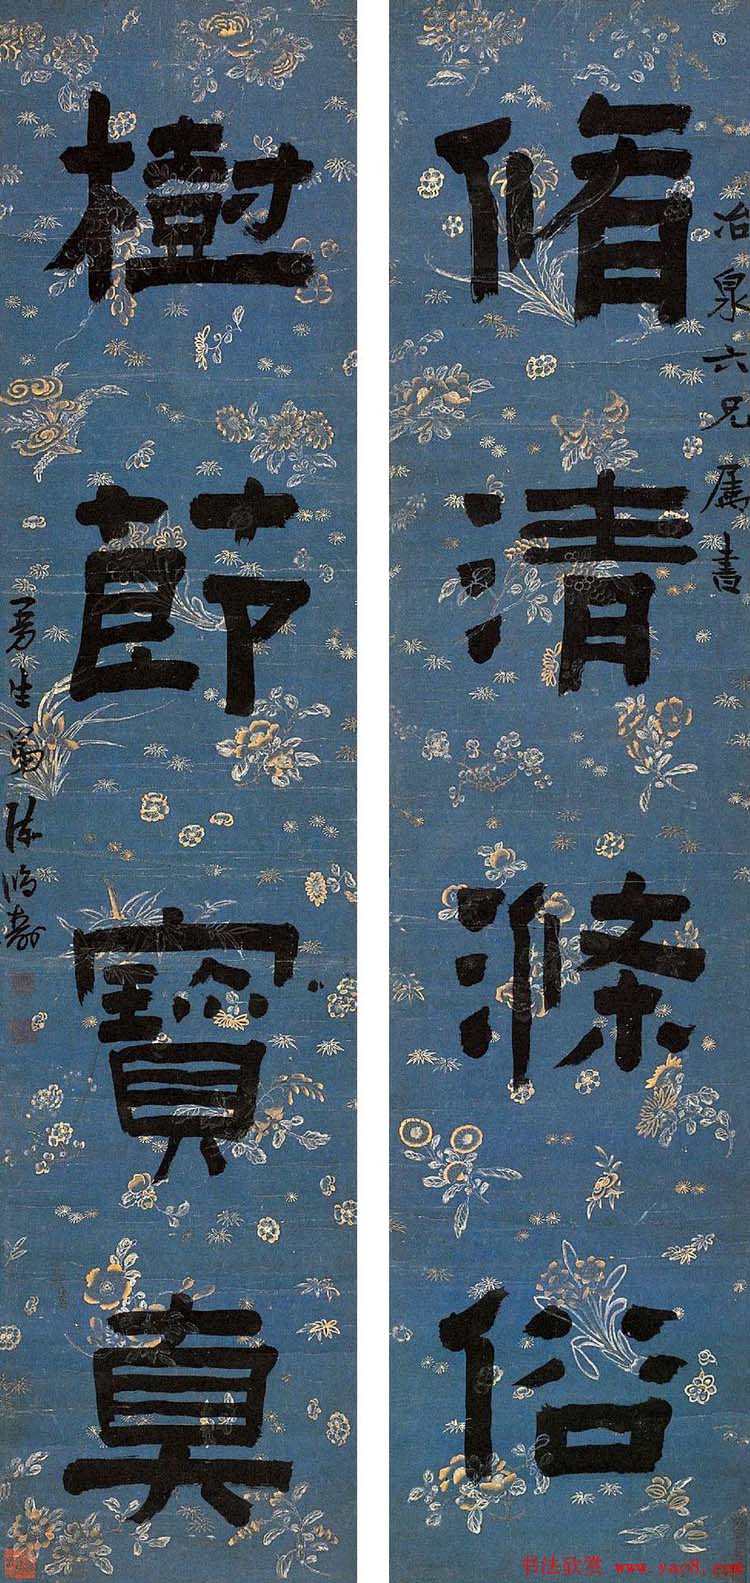 冶泉六兄屬書
脩清滌俗
樹節寶真
曼生弟陳鴻壽
书法欣赏 www.yac8.com